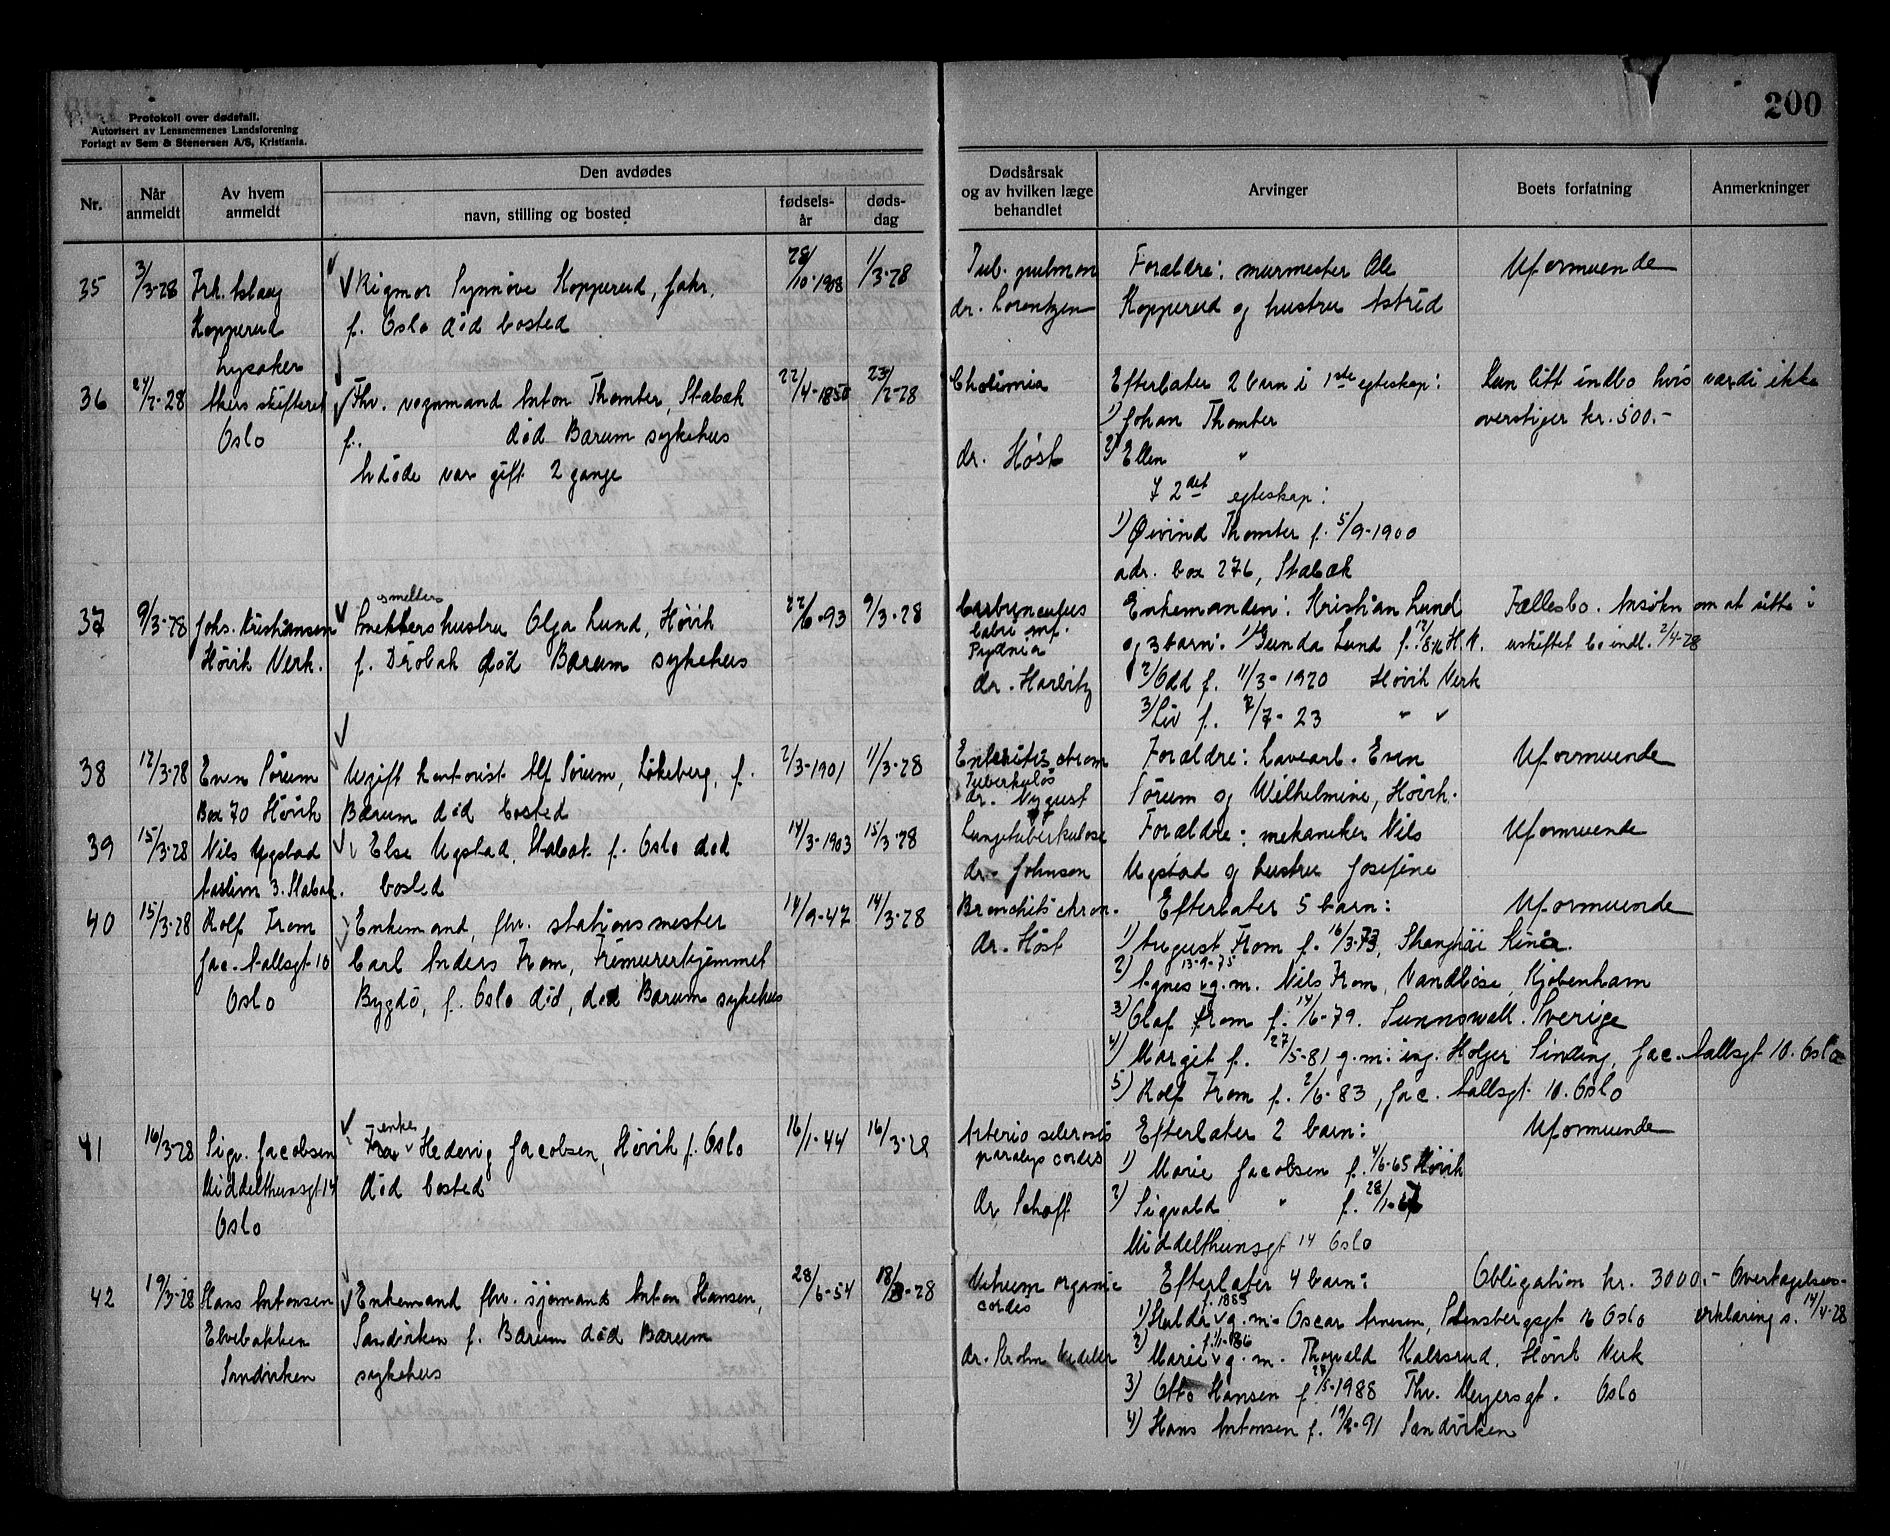 200
Protokoll over dødsfall.
Autorisert av Lensmennenes Landsforening
Forlagt av Sem & Stenersen A/S, Kristiania.
Nr.
Når anmeldt
Av hvem anmeldt
Den avdødes
navn, stilling og bosted
fødsels-år
døds-dag
Dødsårsak og av hvilken læge behandlet
Arvinger
Boets forfatning
Anmerkninger
35 3/3-28 Frk. Aslaug Rigmor Synnøve Kopperud, fabr. 28/10-1908 1/3-28 Tub. pulmon Forældre: murmester Ole Uformuende
Kopperud f. Oslo død bosted dr. Lorentzen Kopperud og hustru Astrid
Lysaker
36 24/2-28 Akers skifteret Fhv. vognmand Anton Thomter, Stabæk 22/4-1850 23/2-28 Cholimia Efterlater 2 barn i 1ste egteskap: Kun litt indbo hvis værdi ikke
Oslo f. død Bærum sykehus 1) Johan Thomter overstiger kr. 500.-
Avdøde var gift 2 gange dr. Høst 2) Ellen "
I 2det egteskap:
1) Øivind Thomter f. 5/9-1900
adr. box 276, Stabæk
37 9/3-28 Johs. Kristiansen smelters hustru Olga Lund, Høvik 22/6-93 9/3-28 Carbunculus Enkemanden: Kristian Lund Fællesbo. Ansøkn om at sitte i
Høvik Verk. f. Drøbak død Bærum sykehus labri inf. og 3 barn: 1) Gunda Lund f. H.V. uskiftet bo indl. 2/4-28
Pyæmia
dr. Harbitz 2) Odd f. 11/3-1920 Høvik Verk
3) Liv f. 7/7-23 " "
38 12/3-28 Even Sørum Ugift kontorist Alf Sørum, Løkeberg, f. 2/3-1901 11/3-28 Enteritis chron Forældre: havearb. Even Uformuende
Box 70 Høvik Bærum død bosted Tuberkuløs
dr. Nygust Sørum og Wilhelmine, Høvik.
39 15/3-28 Nils Ugstad Else Ugstad, Stabæk f. Oslo død 14/3-1903 15/3-28 Lungetuberkulose Forældre: mekaniker Nils Uformuende
3. Stabæk. bosted dr. Johnson Ugstad og hustru Josefine
40 15/3-28 Rolf From Enkemand, fhv. stationsmester 14/9-47 14/3-28 Bronchitis chron. Efterlater 5 barn: Uformuende
Jac. Aallsgt 10 Carl Anders From, Frimurerhjemmet dr. Høst 1) August From f. 16/3-73, Shanghai Kina.
Oslo Bygdø, f. Oslo død, død Bærum sykehus 2) Agnes 13-9-75 g.m. Nils From, Vandløse, Kjøbenham
3) Olaf From f. 14/6-79. Sunnswall. Sverige
4) Margit f. 27/5-81 g.m. ing. Holger Sinding, Jac. Aallsgt 10. Oslo
5) Rolf From f. 2/6-83, Jac. Aallsgt. 10. Oslo
41 16/3-28 Sigv. Jacobsen enke Hedevig Jacobsen, Høvik f. Oslo 16/1-44 16/3-28 Arterio sclerosis Efterlater 2 barn: Uformuende
Middelthunsgt 14 død bosted paralys cordis 1) Marie Jacobsen f. 4/6-65 Høvik
Oslo dr Schoff 2) Sigvald " f. 28/1-67
Middelthunsgt 14 Oslo
42 19/3-28 Hans Antonsen Enkemand fhv. sjømand Anton Hansen, 28/6-54 18/3-28 organic Efterlater 4 barn: Obligation kr. 3000.- Overtagelses-
Elvebakken Sandviken f. Bærum død Bærum cordis 1) Hulda f. 1885 g.m. Oscar Arnesen, Oslo erklæring s. 14/4-28
Sandviken sykehus dr. 2) Marie g.m. Thorvald Kalsrud, Høvik Verk
3) Otto Hansen f. Thv. Meyersgt. Oslo
4) Hans Antonsen f. Sandviken